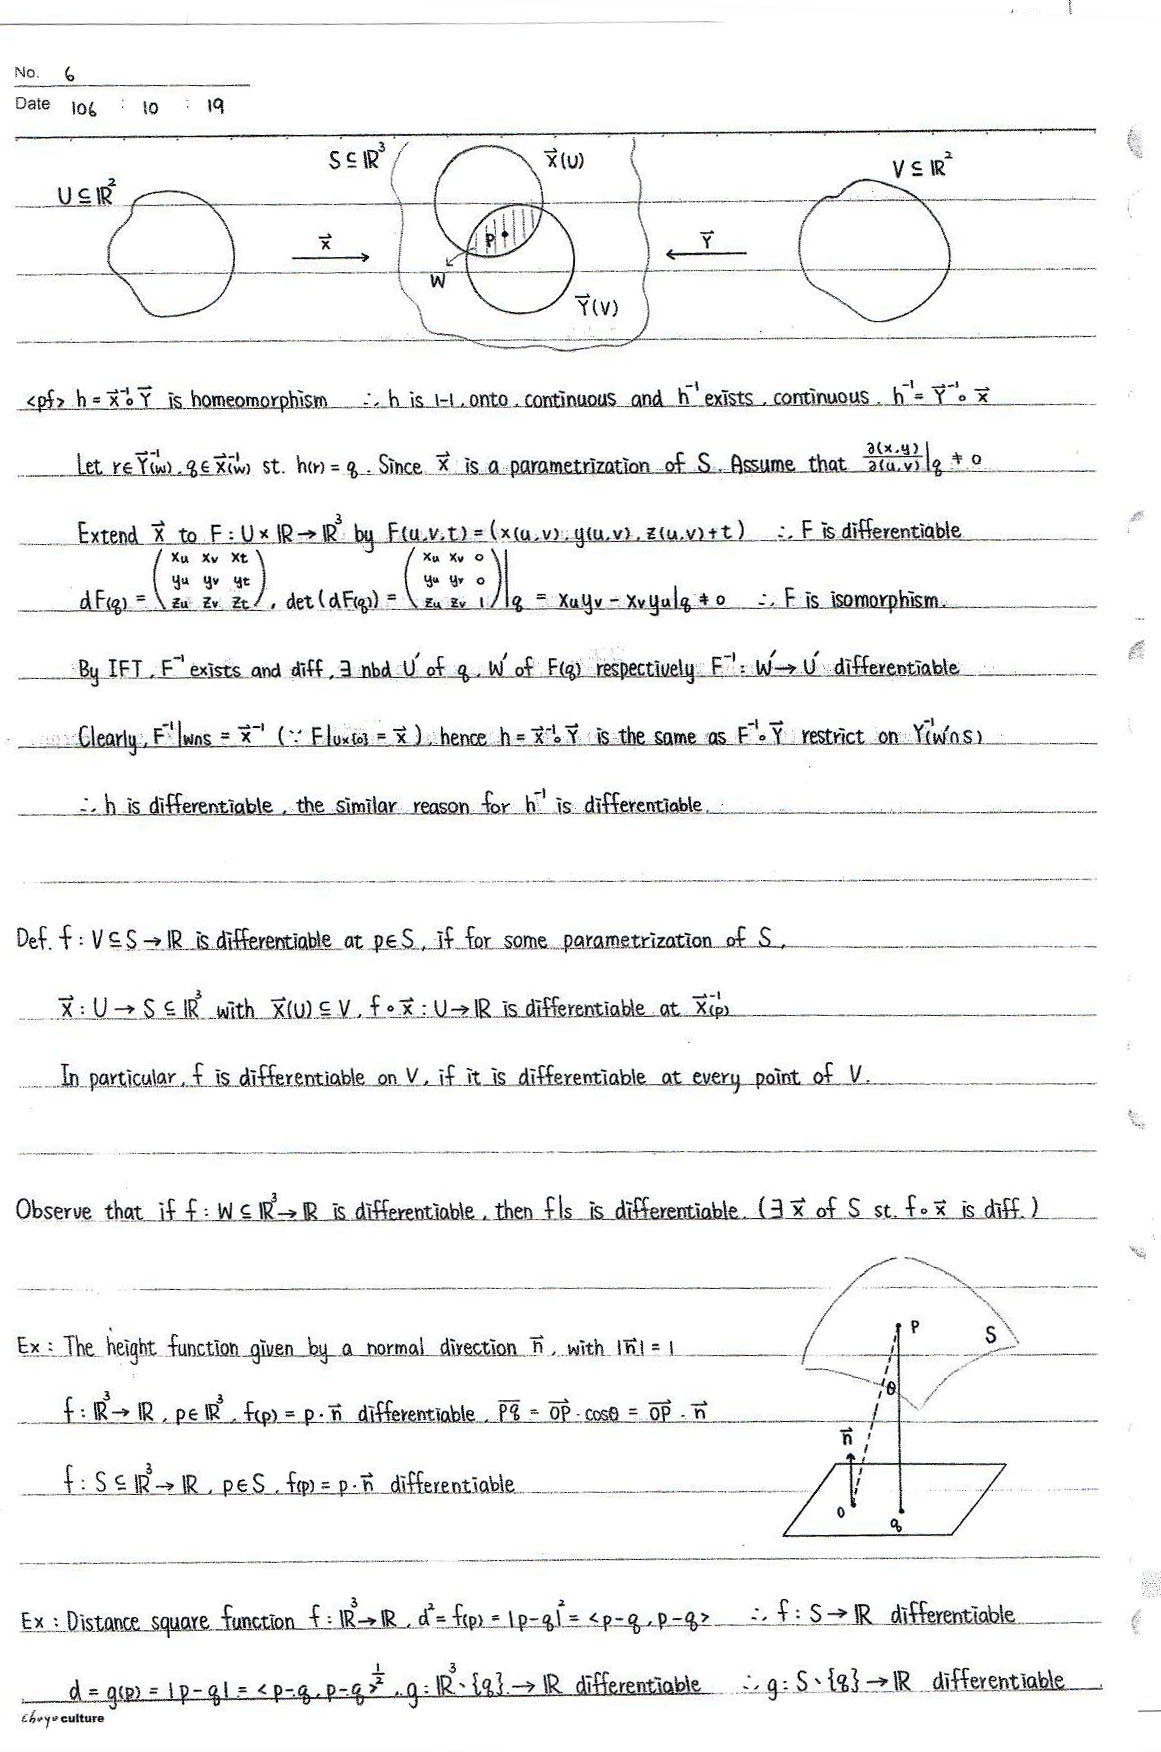 No. 6
Date 106 : 10 : 19
S ⊆ ℝ³
x⃗(U)
V ⊆ ℝ²
U ⊆ ℝ²
x⃗
P
Y⃗
W
Y⃗(V)
<pf> h = x⃗⁻¹∘Y⃗ is homeomorphism ∴ h is 1-1, onto, continuous and h⁻¹ exists, continuous. h⁻¹ = Y⃗⁻¹∘x⃗
Let r∈Y⃗⁻¹(w), q∈x⃗⁻¹(w) st. h(r) = q. Since x⃗ is a parametrization of S. Assume that ∂(x,y)/∂(u,v)|q ≠ 0
Extend x⃗ to F : U×ℝ→ℝ³ by F(u,v,t) = (x(u,v), y(u,v), z(u,v)+t) ∴ F is differentiable
dF(q) = (xu xv xt / yu yv yt / zu zv zt), det(dF(q)) = (xu xv 0 / yu yv 0 / zu zv 1)|q = xuyv - xvyu|q ≠ 0 ∴ F is isomorphism.
By IFT, F⁻¹ exists and diff, ∃ nbd U' of q, W' of F(q) respectively F⁻¹ : W'→U' differentiable
Clearly, F⁻¹|w∩s = x⃗⁻¹ (∵ F|U×{0} = x⃗), hence h = x⃗⁻¹∘Y⃗ is the same as F⁻¹∘Y⃗ restrict on Y⁻¹(W'∩S)
∴ h is differentiable, the similar reason for h⁻¹ is differentiable.
Def. f : V⊆S→ℝ is differentiable at p∈S, if for some parametrization of S,
x⃗ : U→S⊆ℝ³ with x⃗(U)⊆V, f∘x⃗ : U→ℝ is differentiable at x⃗⁻¹(p)
In particular, f is differentiable on V, if it is differentiable at every point of V.
Observe that if f : W⊆ℝ³→ℝ is differentiable, then f|s is differentiable. (∃ x⃗ of S st. f∘x⃗ is diff.)
Ex : The height function given by a normal direction n⃗, with |n⃗| = 1
f : ℝ³→ℝ, p∈ℝ³, f(p) = p·n⃗ differentiable, p̅q̅ = OP⃗·cosθ = OP⃗·n⃗
f : S⊆ℝ³→ℝ, p∈S, f(p) = p·n⃗ differentiable
P
S
θ
n⃗
O
q
Ex : Distance square function f : ℝ³→ℝ, d² = f(p) = |p-q|² = <p-q, p-q> ∴ f : S→ℝ differentiable
d = g(p) = |p-q| = <p-q, p-q>^½, g : ℝ³∖{q}→ℝ differentiable ∴ g : S∖{q}→ℝ differentiable
choyo culture